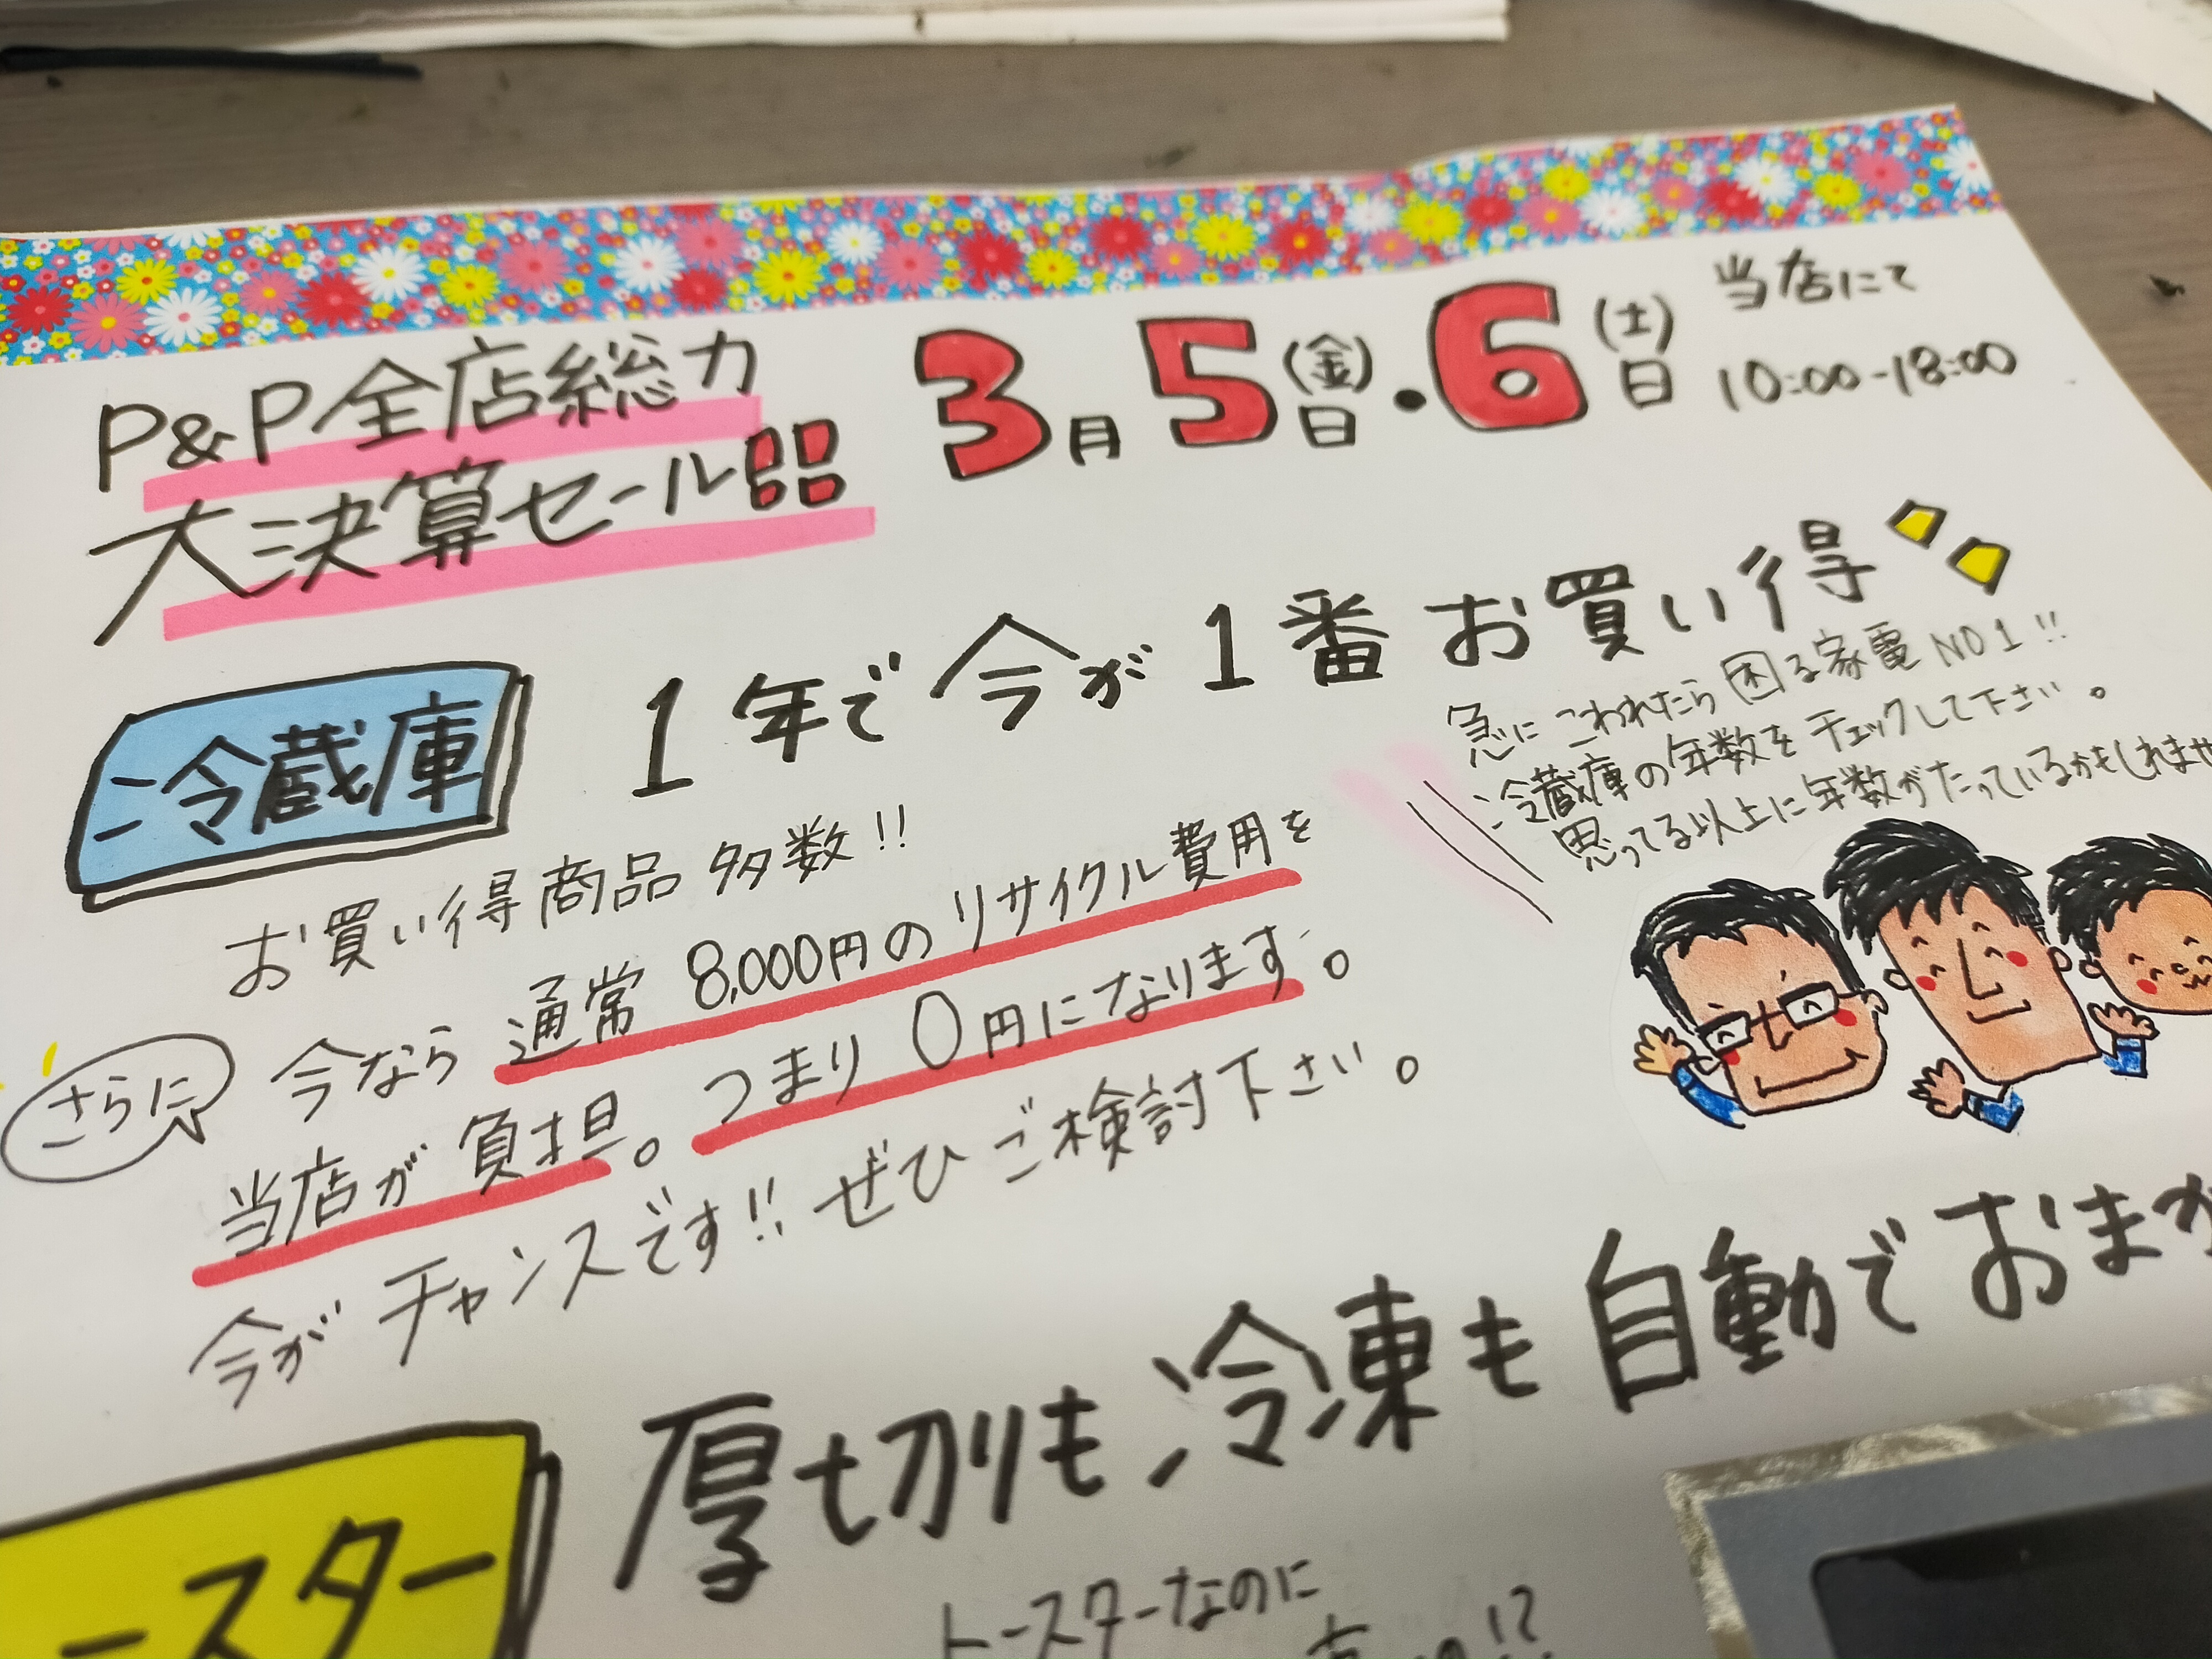 P&P全店総力
大決算セール!!
3月5日(金)・6日(土)
当店にて
10:00-18:00
冷蔵庫
1年で今が1番お買い得
急にこわれたら困る家電NO1!!
冷蔵庫の年数をチェックして下さい。
思ってる以上に年数がたっているかもしれませ
お買い得商品多数!!
さらに
今なら通常8,000円のリサイクル費用を
当店が負担。つまり0円になります。
今がチャンスです!!ぜひご検討下さい。
ースター
厚切りも冷凍も自動でおまか
トースターなのに
!?